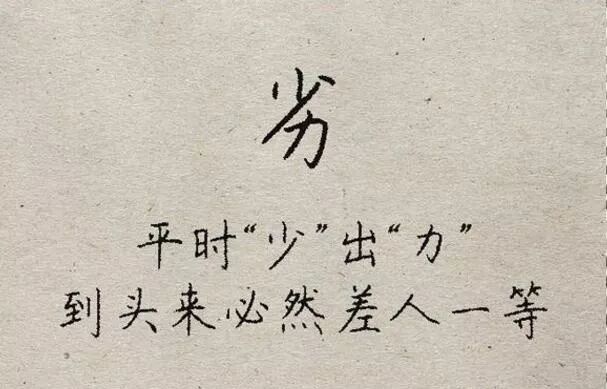 劣
平时“少”出“力”
到头来必然差人一等